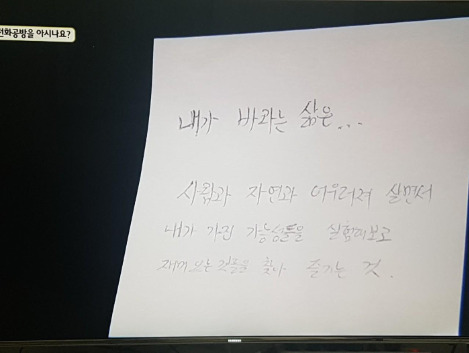 전화공방을 아시나요?
내가 바라는 삶은...
사람과 자연과 어우러져 살면서
내가 가진 가능성들을 실험해보고
재미있는 것들을 찾아 즐기는 것.